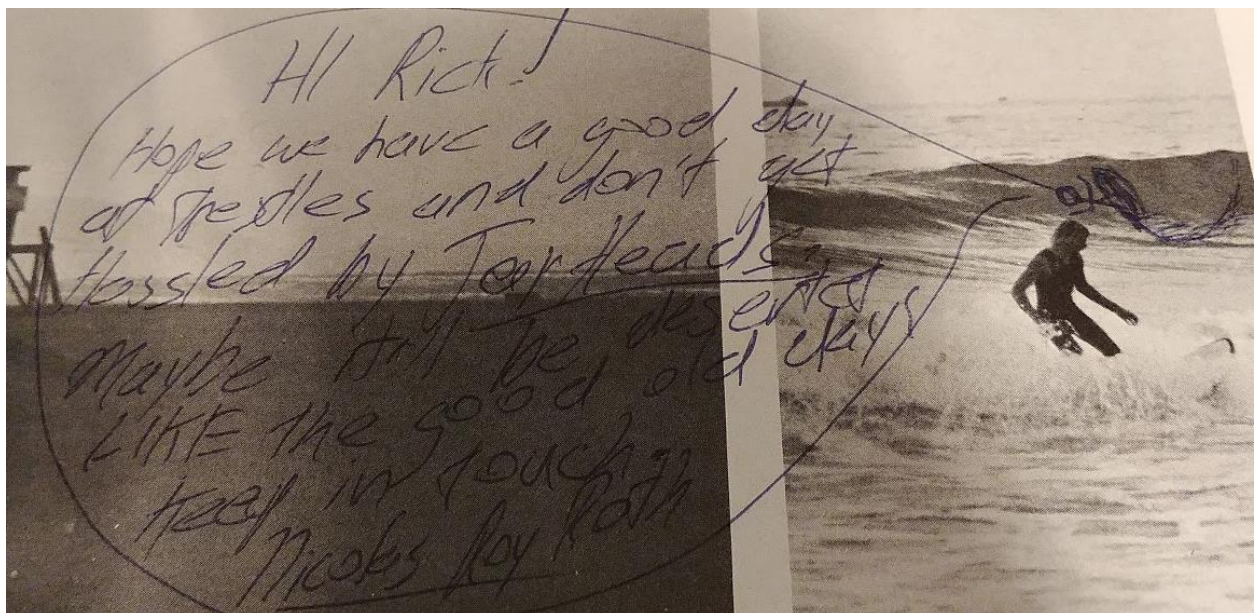 HI Rich!
Hope we have a good day
at Trestles and don't get
Hassled by JarHeads.
Maybe it'll be deserted
LIKE the good old days
Keep in touch,
Nicolas Roy Roth